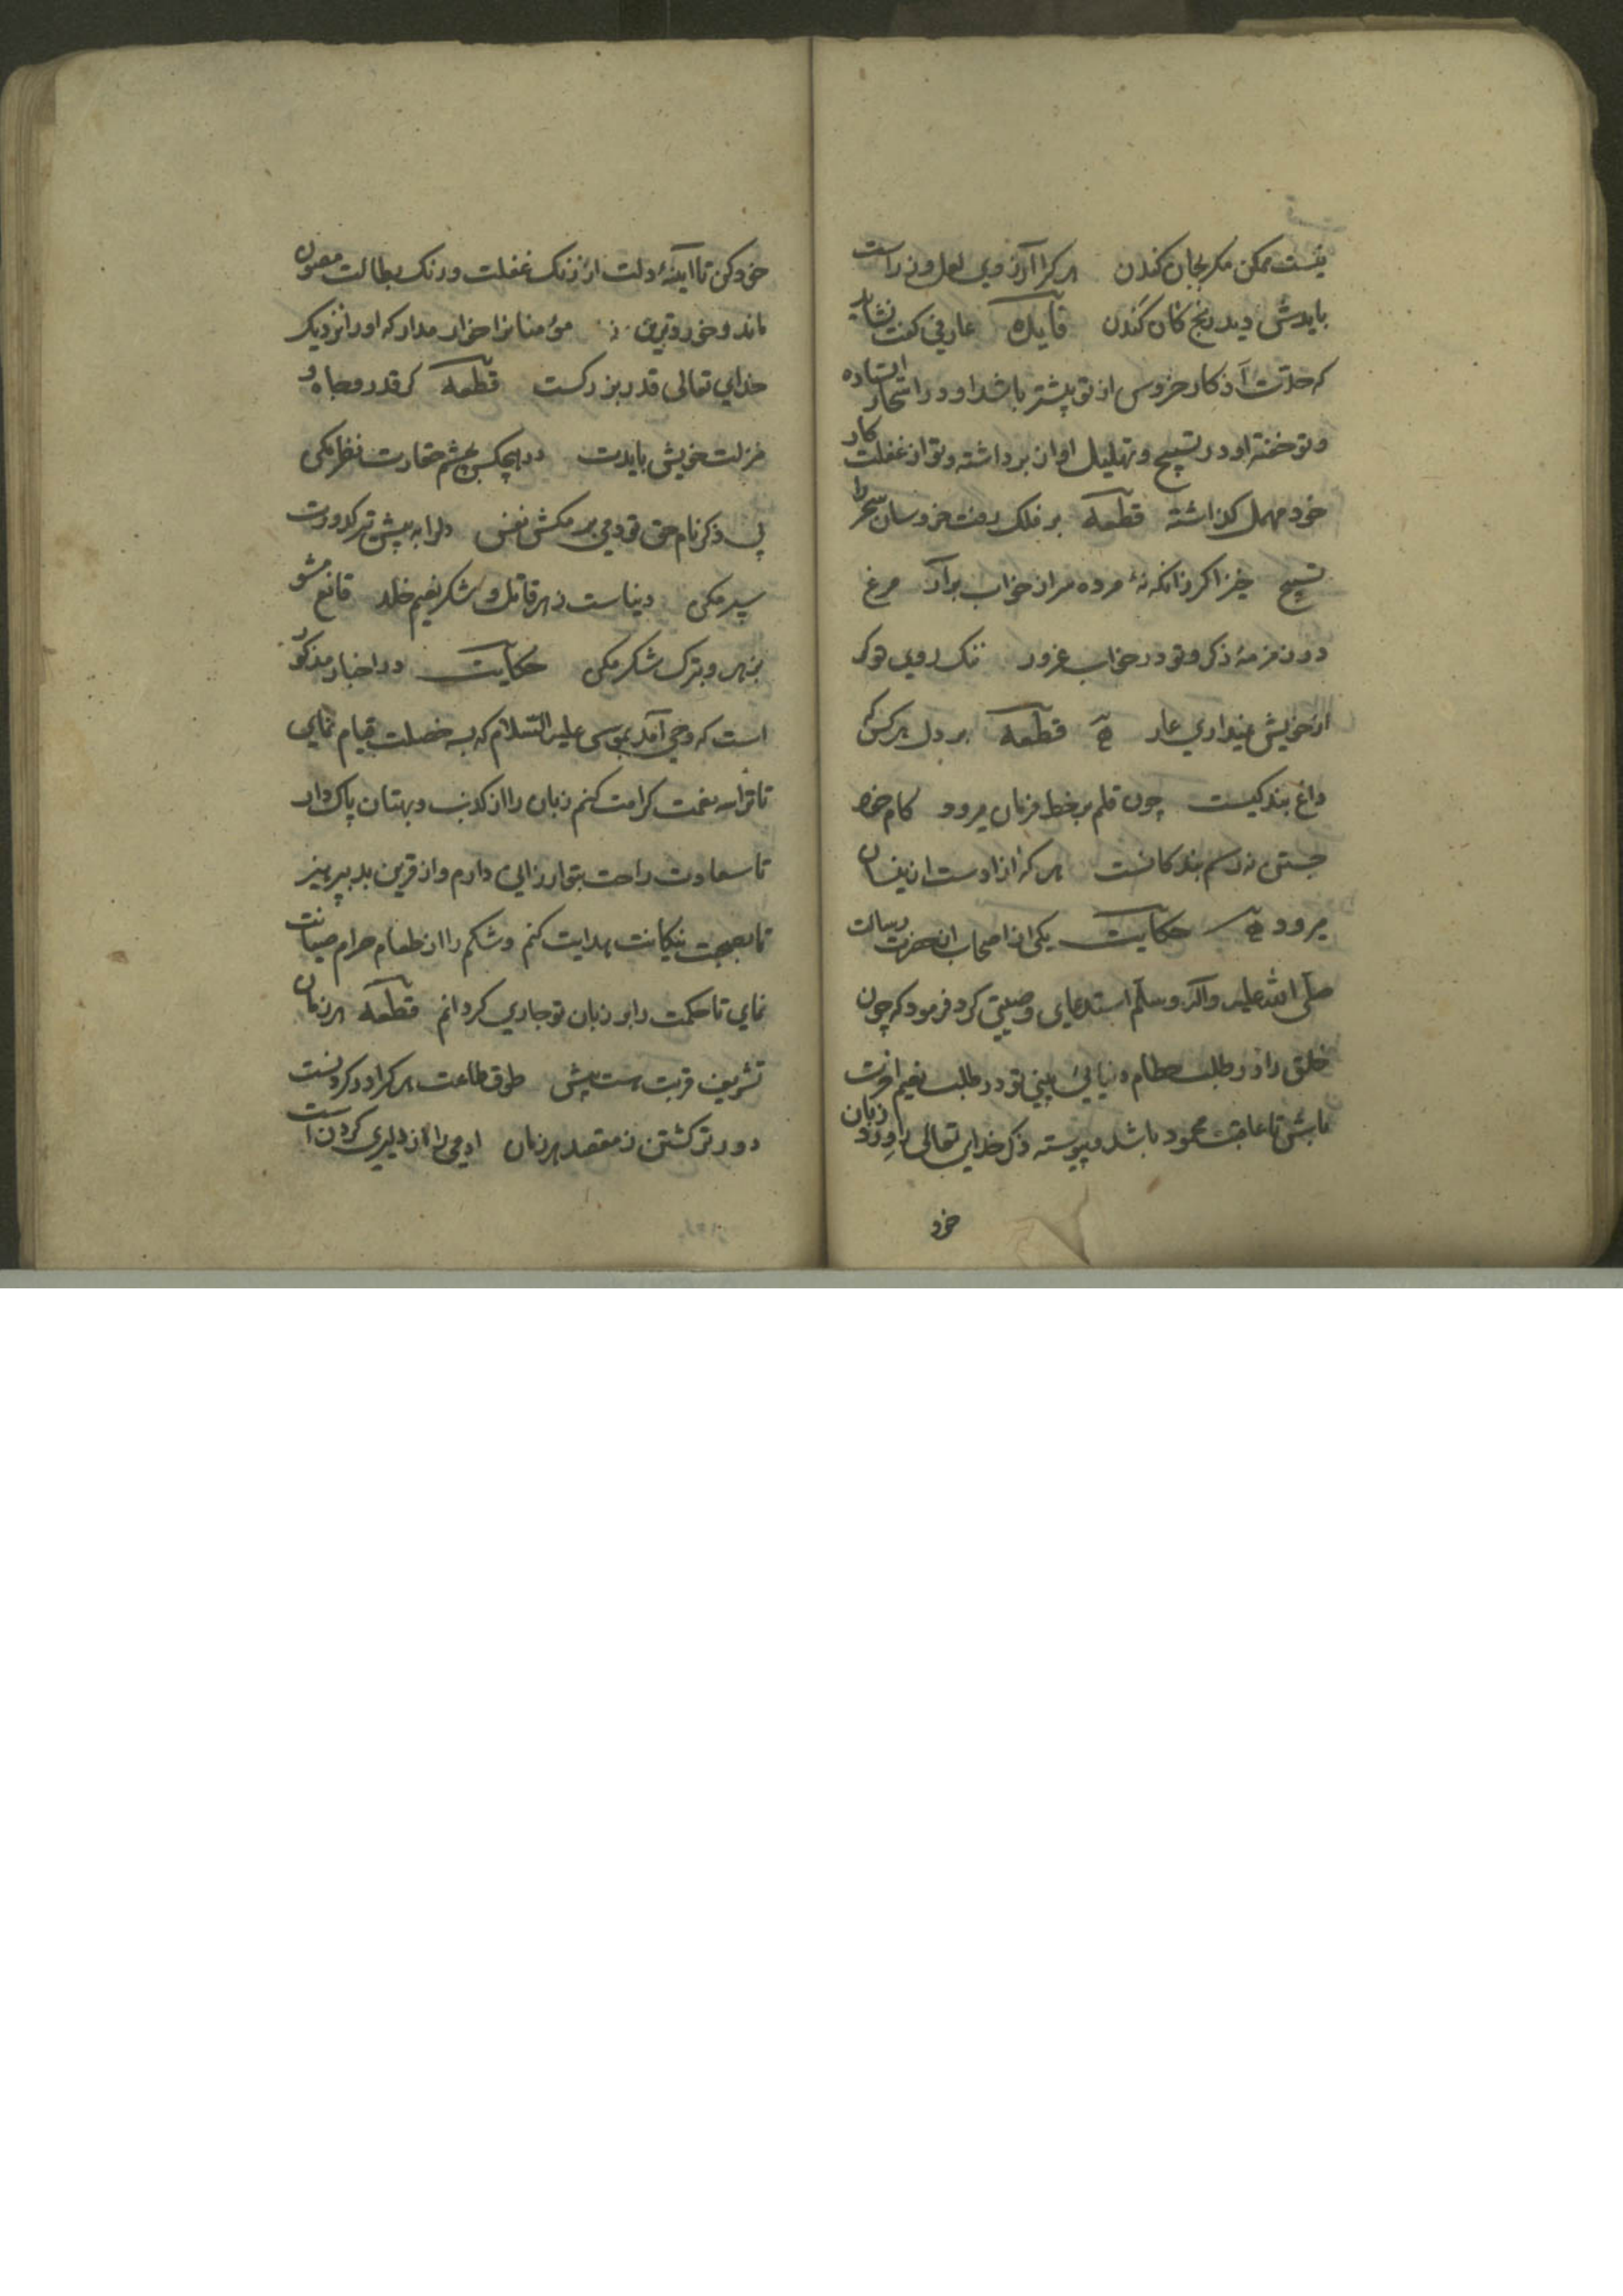 نیست ممکن مکر بجان کندن هر کرا آرزوی لعل و زر است
بایدش دید رنج کان کندن فایده عارفی کفت نشاید
که حدتت آذکار خروس از تو پیشتر باشد او در اسحار ایستاده
و تو خفته او در تسبیح و تهلیل اواز برداشته و تو از غفلت کار
خود مهمل کذاشته قطعه بر فلک رفت خروسان سحر را
تسبیح خیز اکر زانکه نهٔ مرده سر از خواب برآر مرغ
در زمزمهٔ ذکر و تو در خواب غرور ننک روی تو کر
از خویش نمیداری عار قطعه بر دل هر کس که
داغ بندکیست چون قلم بر خط فرمان میرود کام خود
جستن نه رسم بندکانست هر که ازادست از ینسان
میرود حکایت یکی از اصحاب از حضرت رسالت
صلی الله علیه وآله وسلم استدعای وصیتی کرد فرمود که چون
خلق را در طلب حطام دنیائی بینی تو در طلب نعیم اخرت
باش تا عاقبت محمود باشد و پیوسته ذکر خدای تعالی را ورد زبان
خود
خود کن تا اینهٔ دلت از زنک غفلت و رنک بطالت مصون
ماند و خوردترین مؤمنانرا خوار مدار که او را نزدیک
خدای تعالی قدر بزرکست قطعه کر قدر و جاه و
منزلت خویش بایدت در هیچکس بچشم حقارت نظر مکن
بی ذکر نام حق تو دمی بر مکش نفس دلرا به پیش تیر کدورت
سپر مکن دنیاست زهر قاتل و شکر نعیم خلد قانع مشو
بزهر و بترک شکر مکن حکایت در اخبار مذکور
است که وحی آمد بموسی علیه السلام که بسه خصلت قیام نمای
تا ترا سه نعمت کرامت کنم زبان را از کذب و بهتان پاک دار
تا سعادت راحت بتو ارزانی دارم و از قرین بد بپرهیز
تا بصحبت نیکانت هدایت کنم و شکم را از طعام حرام صیانت
نمای تا حکمت را بر زبان تو جاری کردانم قطعه هر زمان
تشریف قربت هست پیش طوق طاعت هر کرا در کردنست
دورتر کشتن ز مقصد هر زمان ادمی را از دلیری کردن است